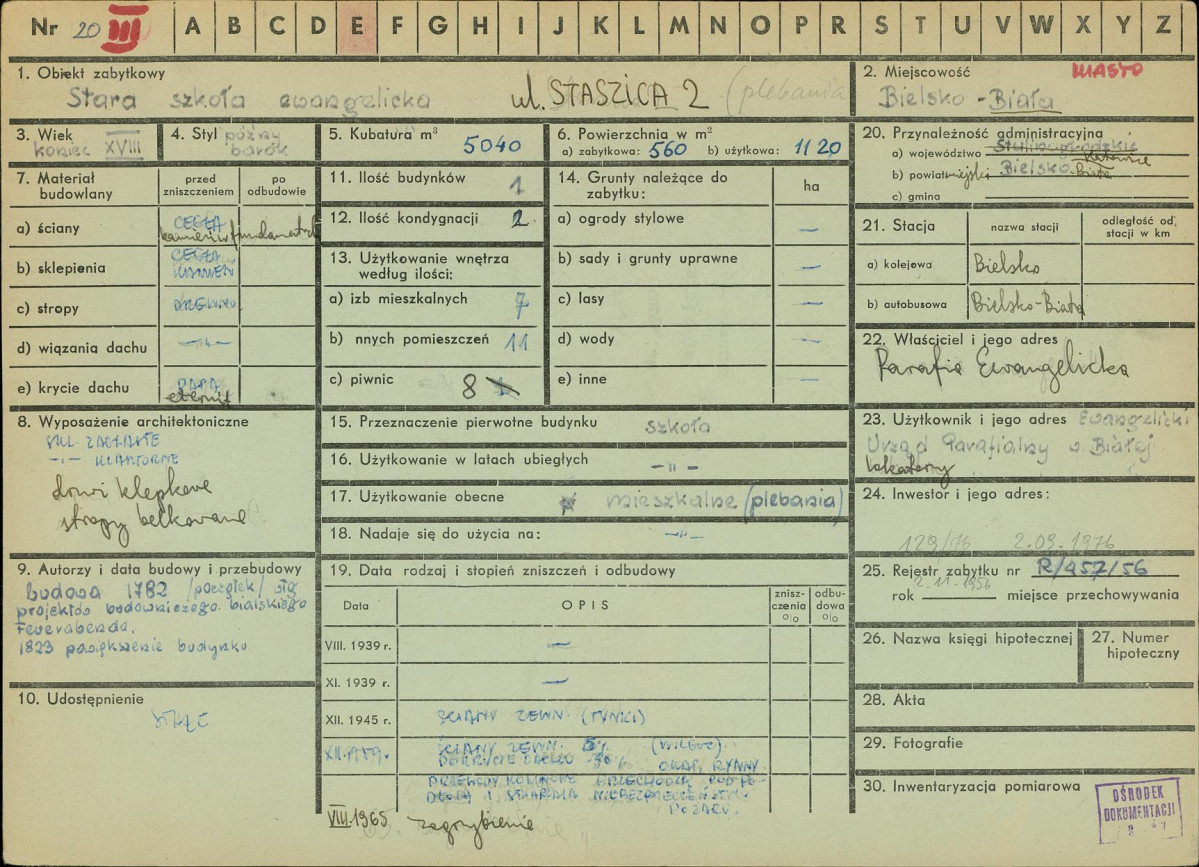 Nr 20 III A B C D E F G H I J K L M N O P R S T U V W X Y Z
1. Obiekt zabytkowy
Stara szkoła ewangelicka ul. STASZICA 2 (plebania
2. Miejscowość MIASTO
Bielsko-Biała
3. Wiek
koniec XVIII
4. Styl późny
barok
5. Kubatura m³
5040
6. Powierzchnia w m²
a) zabytkowa: 560 b) użytkowa: 1120
20. Przynależność administracyjna
a) województwo Stalinogrodzkie
Katowice
b) powiat miejski Bielsko-Biała
c) gmina
7. Materiał budowlany
przed zniszczeniem
po odbudowie
a) ściany CEGŁA
kamień w fundamentach
b) sklepienia CEGŁA
KAMIEŃ
c) stropy DREWNO
d) wiązania dachu -"-
e) krycie dachu PAPA
eternit
11. Ilość budynków 1
12. Ilość kondygnacji 2
13. Użytkowanie wnętrza
według ilości:
a) izb mieszkalnych 7
b) nnych pomieszczeń 11
c) piwnic 8
14. Grunty należące do
zabytku:
ha
a) ogrody stylowe —
b) sady i grunty uprawne —
c) lasy —
d) wody —
e) inne —
21. Stacja
nazwa stacji
odległość od
stacji w km
a) kolejowa Bielsko
b) autobusowa Bielsko-Biała
22. Właściciel i jego adres
Parafia Ewangelicka
8. Wyposażenie architektoniczne
-"- KLASZTORNE
drzwi klepkowe
stropy belkowane
15. Przeznaczenie pierwotne budynku szkoła
16. Użytkowanie w latach ubiegłych -"-
17. Użytkowanie obecne mieszkalne (plebania)
18. Nadaje się do użycia na: -"-
23. Użytkownik i jego adres Ewangelicki
Urząd Parafialny w Białej
lokatorzy
24. Inwestor i jego adres:
129/76 2.09.1976
9. Autorzy i data budowy i przebudowy
Budowa 1782 /początek/ wg
projektów budowniczego bialskiego
Feuerabenda.
1823 powiększenie budynku
19. Data rodzaj i stopień zniszczeń i odbudowy
Data
OPIS
znisz-
czenia
%
odbu-
dowa
%
VIII. 1939 r. —
XI. 1939 r. —
XII. 1945 r. ŚCIANY ZEWN. (TYNKI)
XII. 1959r. ŚCIANY ZEWN. 5% (WILGOĆ).
POKRYCIE DACHU 30% OKAP, RYNNY
PRZEWODY KOMINOWE PRZECHODZĄ POD PO-
DŁOGĄ I STWARZA NIEBEZPIECZEŃSTWO
POŻARU.
VIII.1965 zagrzybienie
25. Rejestr zabytku nr R/457/56
2.11.1956
rok miejsce przechowywania
26. Nazwa księgi hipotecznej
27. Numer
hipoteczny
10. Udostępnienie
28. Akta
29. Fotografie
30. Inwentaryzacja pomiarowa
OŚRODEK
DOKUMENTACJI